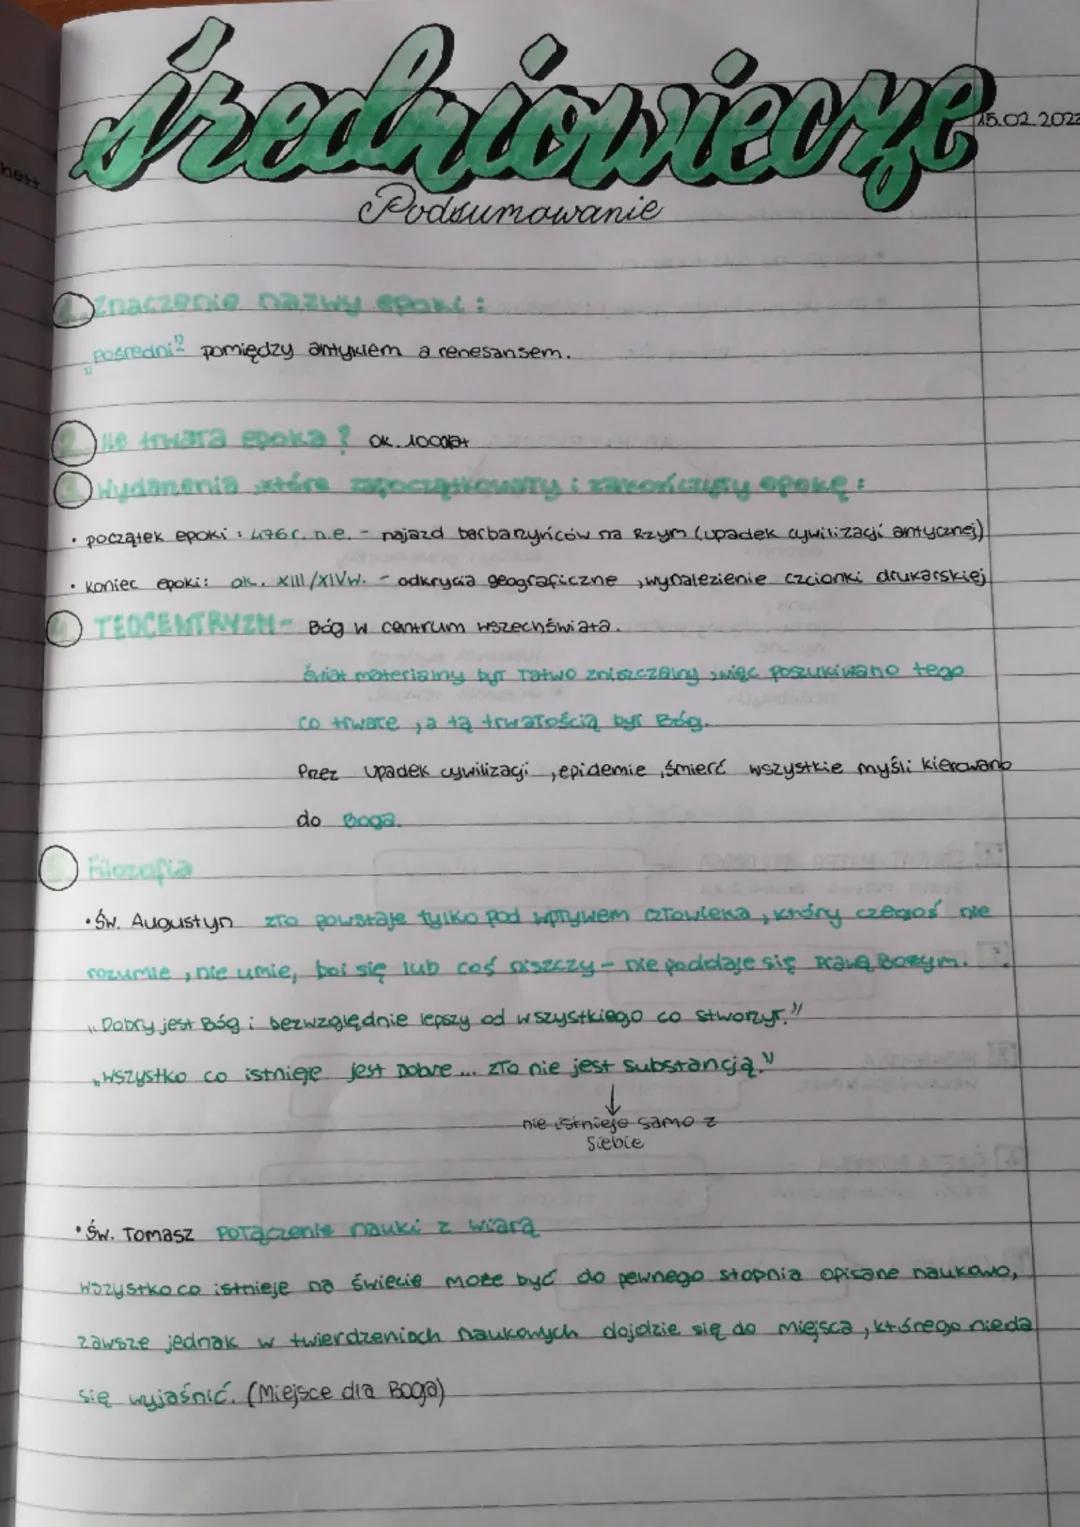 średniowiecze
15.02.2022
Podsumowanie
1. Znaczenie nazwy epoki:
„pośredni” pomiędzy antykiem a renesansem.
2. Ile trwała epoka? ok. 1000 lat
3. Wydarzenia, które zapoczątkowały i zakończyły epokę:
• początek epoki: 476r. n.e. - najazd barbarzyńców na Rzym (upadek cywilizacji antycznej)
• koniec epoki: ok. XIII/XIVw. - odkrycia geograficzne, wynalezienie czcionki drukarskiej
4. TEOCENTRYZM - Bóg w centrum wszechświata.
Świat materialny był łatwo zniszczalny, więc poszukiwano tego
co trwałe, a tą trwałością był Bóg.
Przez upadek cywilizacji, epidemie, śmierć wszystkie myśli kierowano
do Boga.
5. Filozofia
• Św. Augustyn zło powstaje tylko pod wpływem człowieka, który czegoś nie
rozumie, nie umie, boi się lub coś niszczy - nie poddaje się prawą Bożym.
„Dobry jest Bóg i bezwzględnie lepszy od wszystkiego co stworzył.”
„Wszystko co istnieje jest Dobre... zło nie jest substancją.”
↓
nie istnieje samo z
siebie
• Św. Tomasz połączenie nauki z wiarą
Wszystko co istnieje na świecie może być do pewnego stopnia opisane naukowo,
zawsze jednak w twierdzeniach naukowych dojdzie się do miejsca, którego nieda
się wyjaśnić. (Miejsce dla Boga)